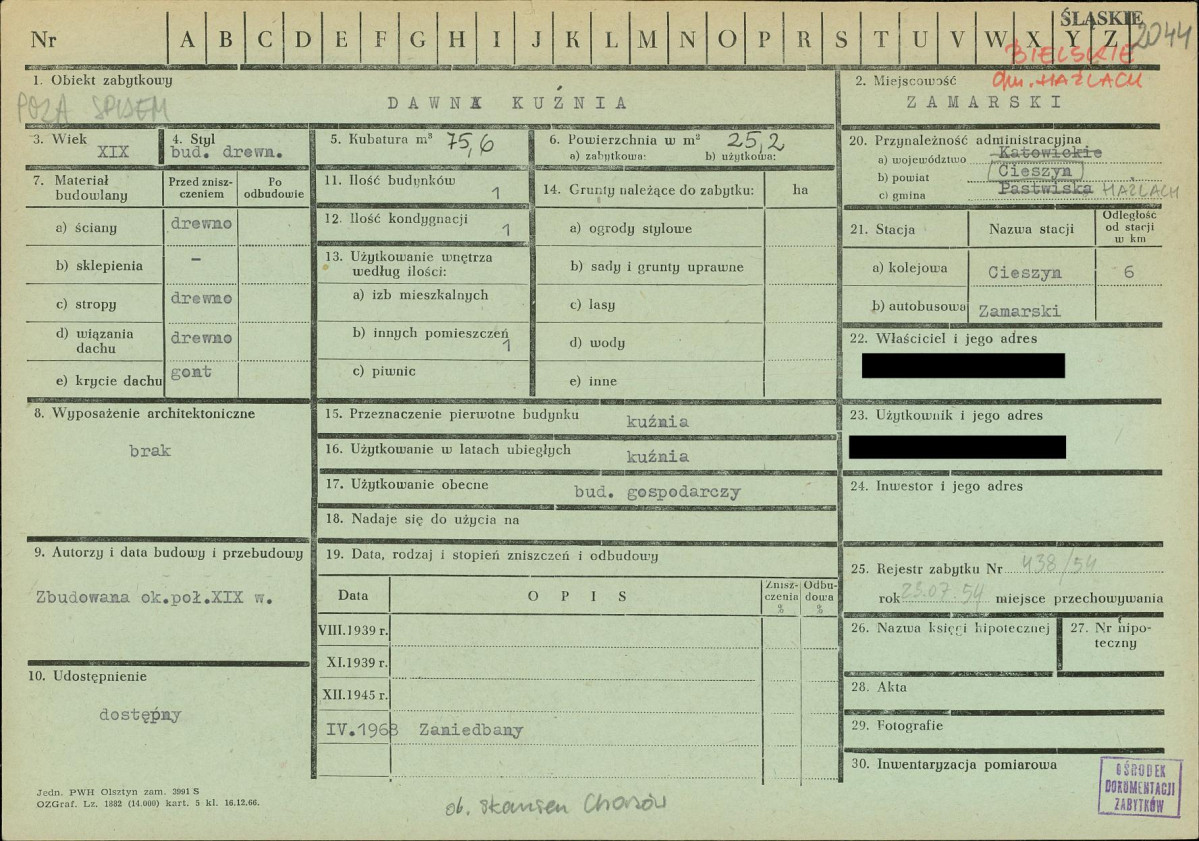 Nr A B C D E F G H I J K L M N O P R S T U V W X Y Z
ŚLĄSKIE 2044
BIELSKIE
gm. HAŻLACH
1. Obiekt zabytkowy
POZA SPISEM
DAWNA KUŹNIA
2. Miejscowość
ZAMARSKI
3. Wiek
XIX
4. Styl
bud. drewn.
5. Kubatura m³ 75,6
6. Powierzchnia w m² 25,2
a) zabytkowa: b) użytkowa:
7. Materiał budowlany
Przed zniszczeniem
Po odbudowie
a) ściany drewno
b) sklepienia –
c) stropy drewno
d) wiązania dachu drewno
e) krycie dachu gont
8. Wyposażenie architektoniczne
brak
9. Autorzy i data budowy i przebudowy
Zbudowana ok.poł.XIX w.
10. Udostępnienie
dostępny
11. Ilość budynków 1
12. Ilość kondygnacji 1
13. Użytkowanie wnętrza
według ilości:
a) izb mieszkalnych
b) innych pomieszczeń 1
c) piwnic
14. Grunty należące do zabytku: ha
a) ogrody stylowe
b) sady i grunty uprawne
c) lasy
d) wody
e) inne
15. Przeznaczenie pierwotne budynku kuźnia
16. Użytkowanie w latach ubiegłych kuźnia
17. Użytkowanie obecne bud. gospodarczy
18. Nadaje się do użycia na
19. Data, rodzaj i stopień zniszczeń i odbudowy
Data OPIS Zniszczenia % Odbudowa %
VIII.1939 r.
XI.1939 r.
XII.1945 r.
IV.1968 Zaniedbany
20. Przynależność administracyjna
a) województwo Katowickie
b) powiat Cieszyn
c) gmina Pastwiska HAŻLACH
21. Stacja Nazwa stacji Odległość od stacji w km
a) kolejowa Cieszyn 6
b) autobusowa Zamarski
22. Właściciel i jego adres
23. Użytkownik i jego adres
24. Inwestor i jego adres
25. Rejestr zabytku Nr 438/54
rok 23.07.54 miejsce przechowywania
26. Nazwa księgi hipotecznej
27. Nr hipoteczny
28. Akta
29. Fotografie
30. Inwentaryzacja pomiarowa
OŚRODEK
DOKUMENTACJI
ZABYTKÓW
Jedn. PWH Olsztyn zam. 3991 S
OZGraf. Lz. 1882 (14.000) kart. 5 kl. 16.12.66.
ob. skansen Chorzów